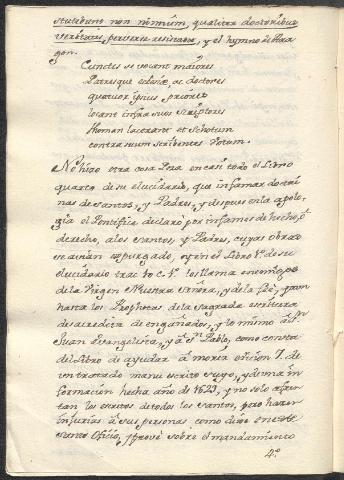 non nimium, qualiter doctoribus
perverse resistat, y el hymno de
gon.
Cunctos se vocant maiores
Patresque ac doctores
quatuor ipsius priores
vocant infra suos scriptores
Thomam lacerant et Schotum
contra eum scribentes totum.
No hizo otra cosa Poza en casi todo el Libro
quarto de su elucidario, que infamar doctri
nas de Santos, y Padres, y despues en la apolo-
gia el Pontifice declaró por infames de hecho, y
derecho, a los Santos, y Padres, cuyas obras
se avian expurgado, y en el Libro 4º de su
elucidario trac to c. los llama enemigos
de la Virgen Nuestra Señora, y de la fee, y aun
hasta los Prophetas de la sagrada escritura
desacredita de engañados, y lo mismo a Sn
Juan Evangelista, y á Sn Pablo, como consta
del Libro de ayudar a morir oficio 7. de
un tratado manu escrito suyo, y de una in
formacion hecha año de 1629, y no solo afren
tan los escritos de todos los santos, pero hacen
injurias á sus personas como dixo en este
Santo Oficio, y provó sobre el mandamiento
4º